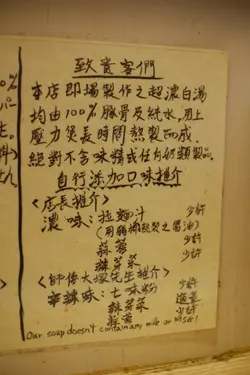 致貴客們
本店即場製作之超濃白湯
均由100%豚骨及純水,用上
壓力煲長時間熬製而成,
絕對不含味精或任何奶類製品。
自行添加口味推介
<店長推介>
濃味:拉麵汁 少許
(用豬肉熬製之醬油)
蒜蓉 少許
辣芽菜 少許
<師傅大塚先生推介>
辛辣味:七味粉 少許
辣芽菜 適量
蒜蓉 少許
Our soup doesn't contain any milk or MSG!
100%